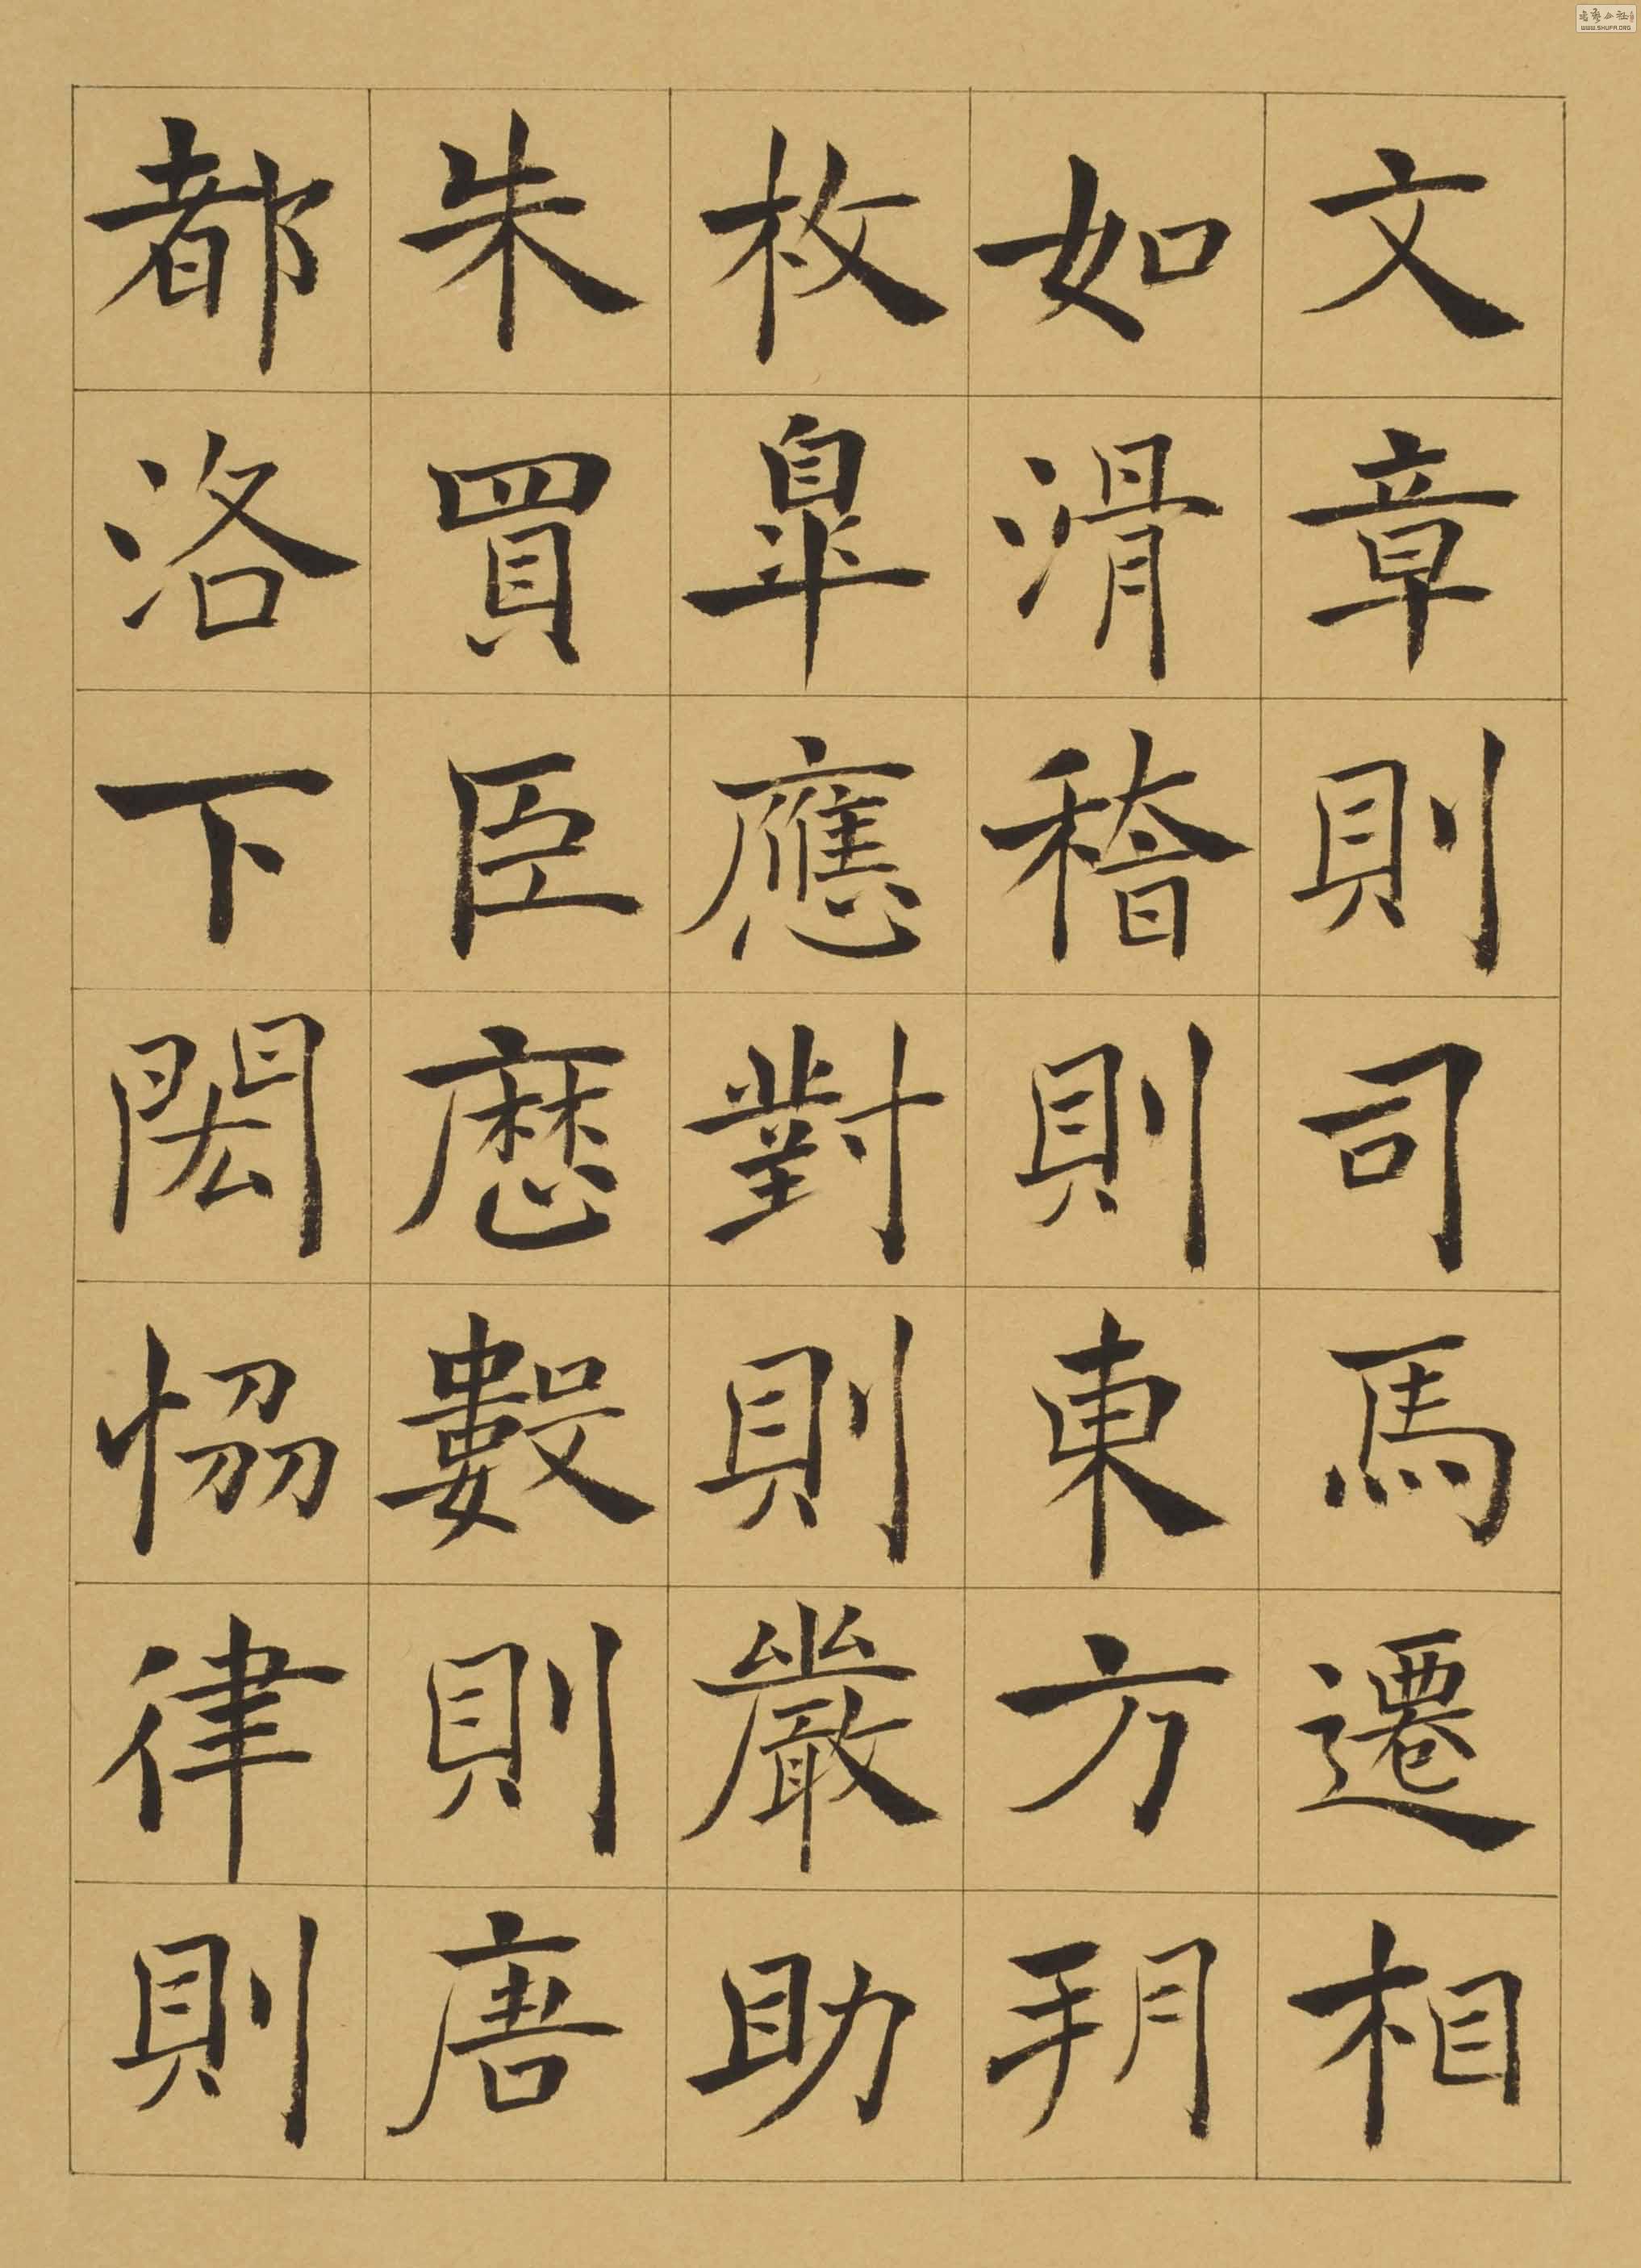 文章則司馬遷相
如滑稽則東方朔
枚皐應對則嚴助
朱買臣歷數則唐
都洛下閎恊律則
WWW.SHUFA.ORG